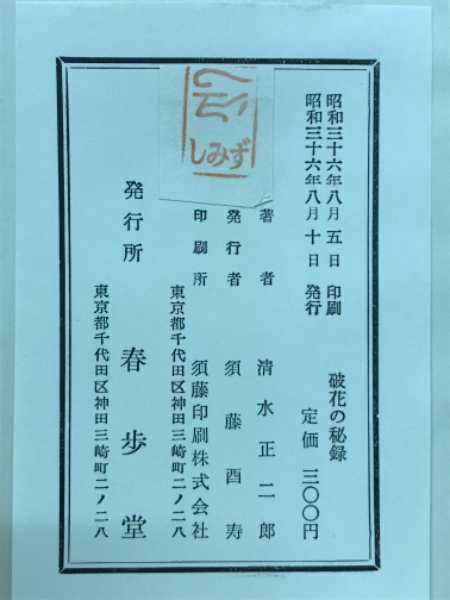 昭和三十六年八月五日 印刷
昭和三十六年八月十日 発行
破花の秘録
定価 三〇〇円
著者 清水正二郎
発行者 須藤酉寿
印刷所 須藤印刷株式会社
東京都千代田区神田三崎町二ノ二八
発行所 春歩堂
東京都千代田区神田三崎町二ノ二八
しみず